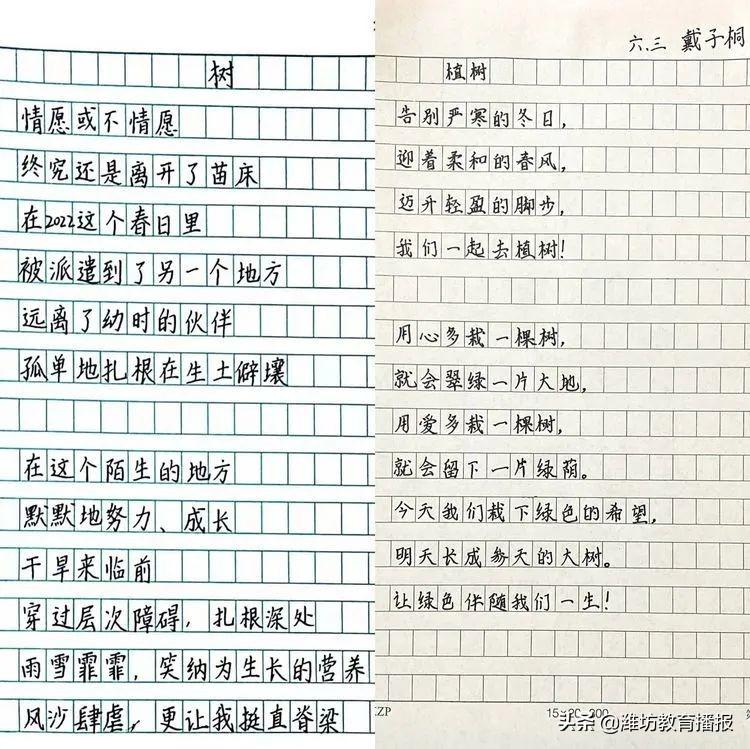 树
情愿或不情愿
终究还是离开了苗床
在2022这个春日里
被派遣到了另一个地方
远离了幼时的伙伴
孤单地扎根在生土僻壤
在这个陌生的地方
默默地努力、成长
干旱来临前
穿过层次障碍,扎根深处
雨雪霏霏,笑纳为生长的营养
风沙肆虐,更让我挺直脊梁
六.三 戴子桐
植树
告别严寒的冬日,
迎着柔和的春风,
迈开轻盈的脚步,
我们一起去植树!
用心多栽一棵树,
就会翠绿一片大地,
用爱多栽一棵树,
就会留下一片绿荫。
今天我们栽下绿色的希望,
明天长成参天的大树。
让绿色伴随我们一生!
头条 @潍坊教育播报